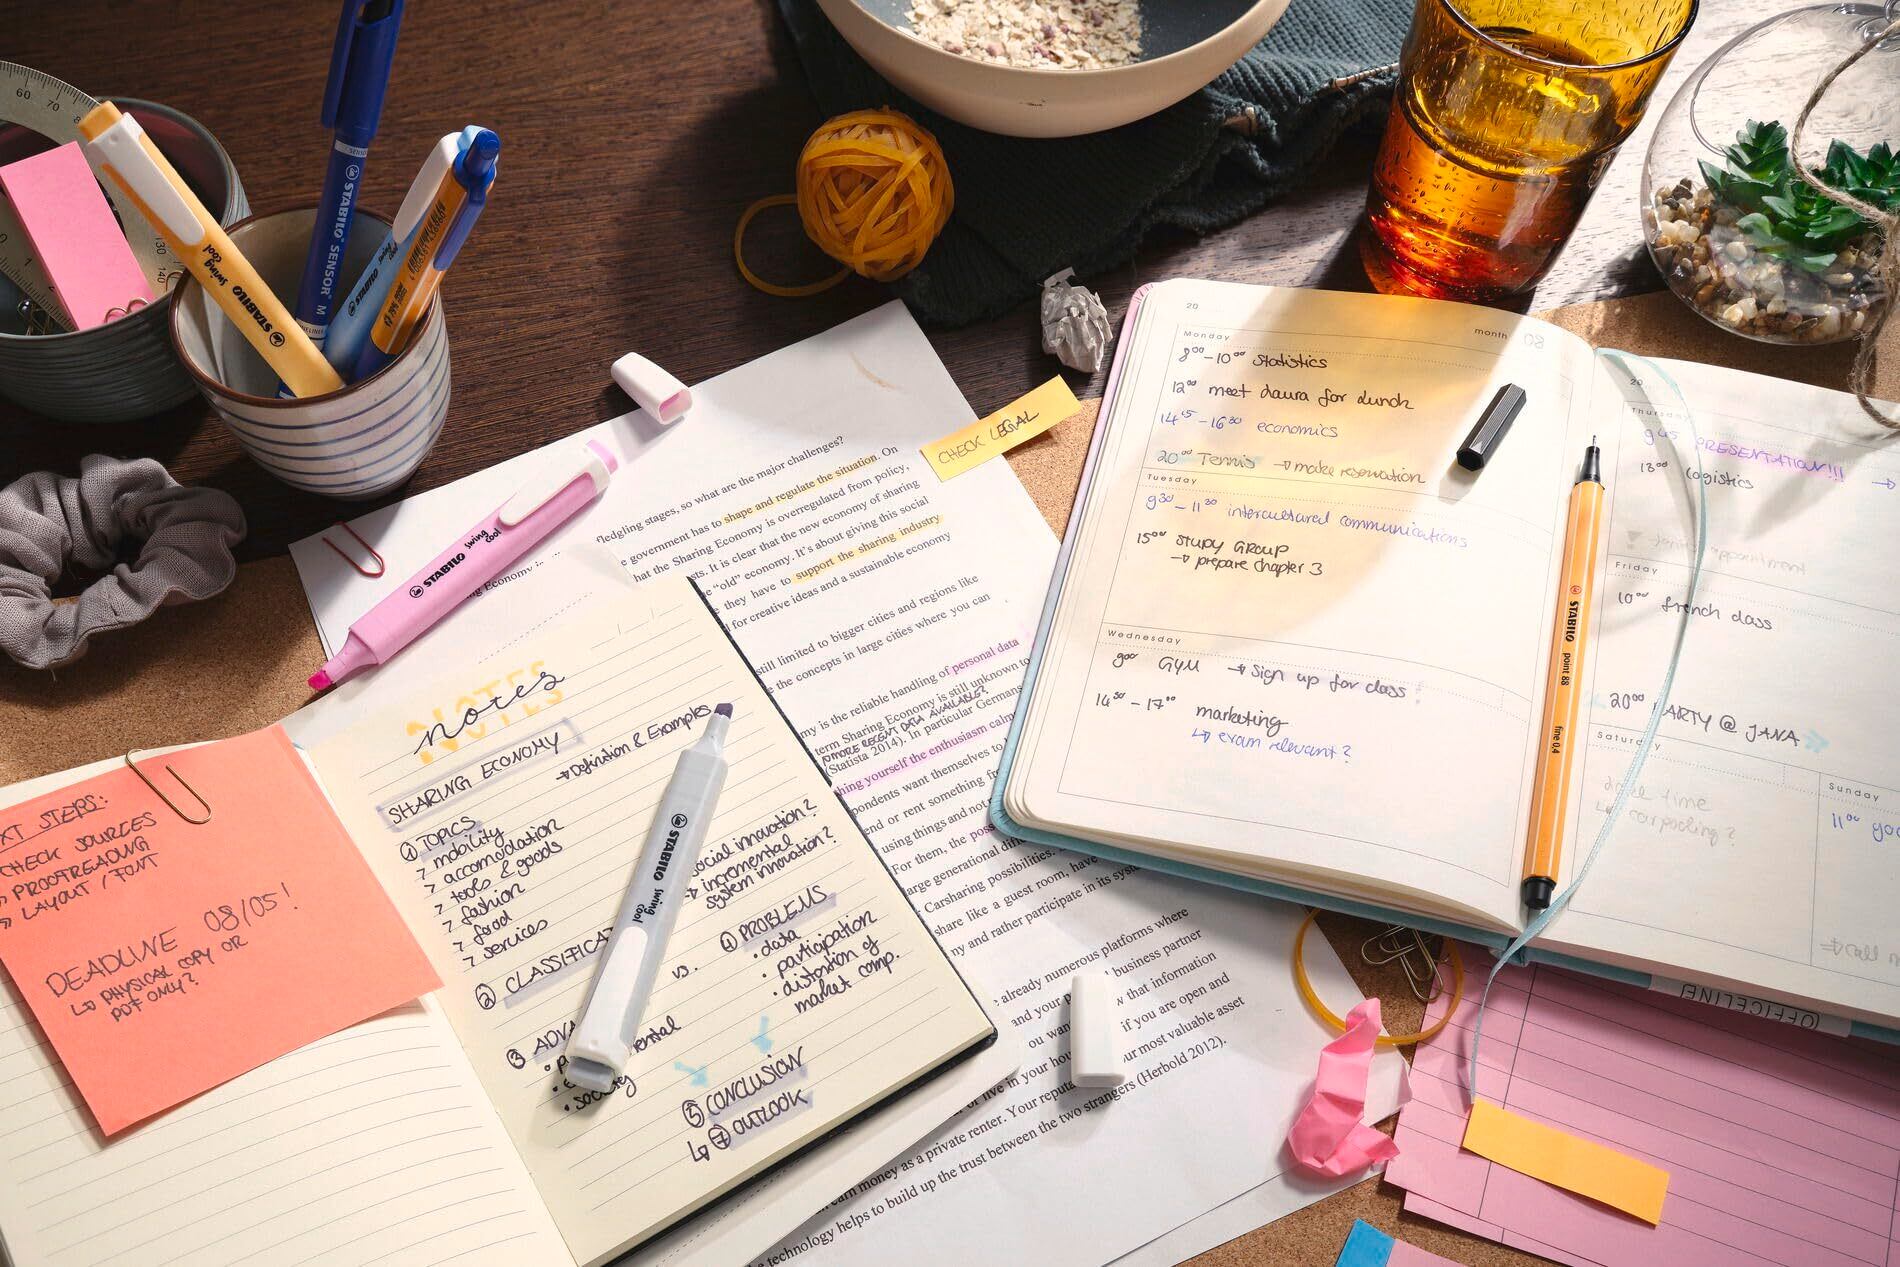 60 70
130 140
STABILO swing cool
STABILO SENSOR M
STABILO
STABILO swing cool
CHECK LEGAL
fledgling stages, so what are the major challenges?
government has to shape and regulate the situation. On
hat the Sharing Economy is overregulated from policy,
sts. It is clear that the new economy of sharing
"old" economy. It's about giving this social
they have to support the sharing industry
for creative ideas and a sustainable economy
still limited to bigger cities and regions like
the concepts in large cities where you can
my is the reliable handling of personal data
term Sharing Economy is still unknown to
MORE RECENT DATA AVAILABLE?
(Statista 2014). In particular Germans
hing yourself the enthusiasm calm
pondents want themselves to
end or rent something
using things and not
For them, the
large generational
Carsharing possibilities.
share like a guest room, have
ny and rather participate in its
already numerous platforms where
and your business partner
ou wan that information
in your hou if you are open and
or live in your most valuable asset
earn money as a private renter. Your reputa
technology helps to build up the trust between the two strangers (Herbold 2012).
NOTES
notes
SHARING ECONOMY
→ Definition & Examples
① TOPICS
> mobility
> accomodation
> tools & goods
> fashion
> food
> services
social innovation?
→ incremental
system innovation?
② CLASSIFICAT
vs.
④ PROBLEMS
• data
• participation
• distortion of
market comp.
③ ADVA
ental
⑤ CONCLUSION
↳ ⑦ OUTLOOK
STABILO swing cool
XT STEPS:
CHECK SOURCES
» PROOFREADING
» LAYOUT / FONT
DEADLINE 08/05!
↳ PHYSICAL COPY OR
PDF ONLY?
20
month 08
Monday
8⁰⁰-10⁰⁰ Statistics
12⁰⁰ meet Laura for lunch
14¹⁵-16³⁰ economics
20⁰⁰ Tennis → make reservation
Tuesday
9³⁰-11³⁰ intercultured communications
15⁰⁰ STUDY GROUP
→ prepare chapter 3
Wednesday
9⁰⁰ GYM → sign up for class
14³⁰-17⁰⁰ marketing
↳ exam relevant?
STABILO point 88 fine 0,4
20
Thursday
9⁴⁵ PRESENTATION!!!
13⁰⁰ Logistics
Friday
10⁰⁰ french class
20⁰⁰ PARTY @ JANA
Saturday
time
↳ carpooling?
Sunday
11⁰⁰
call
OFFICELINE